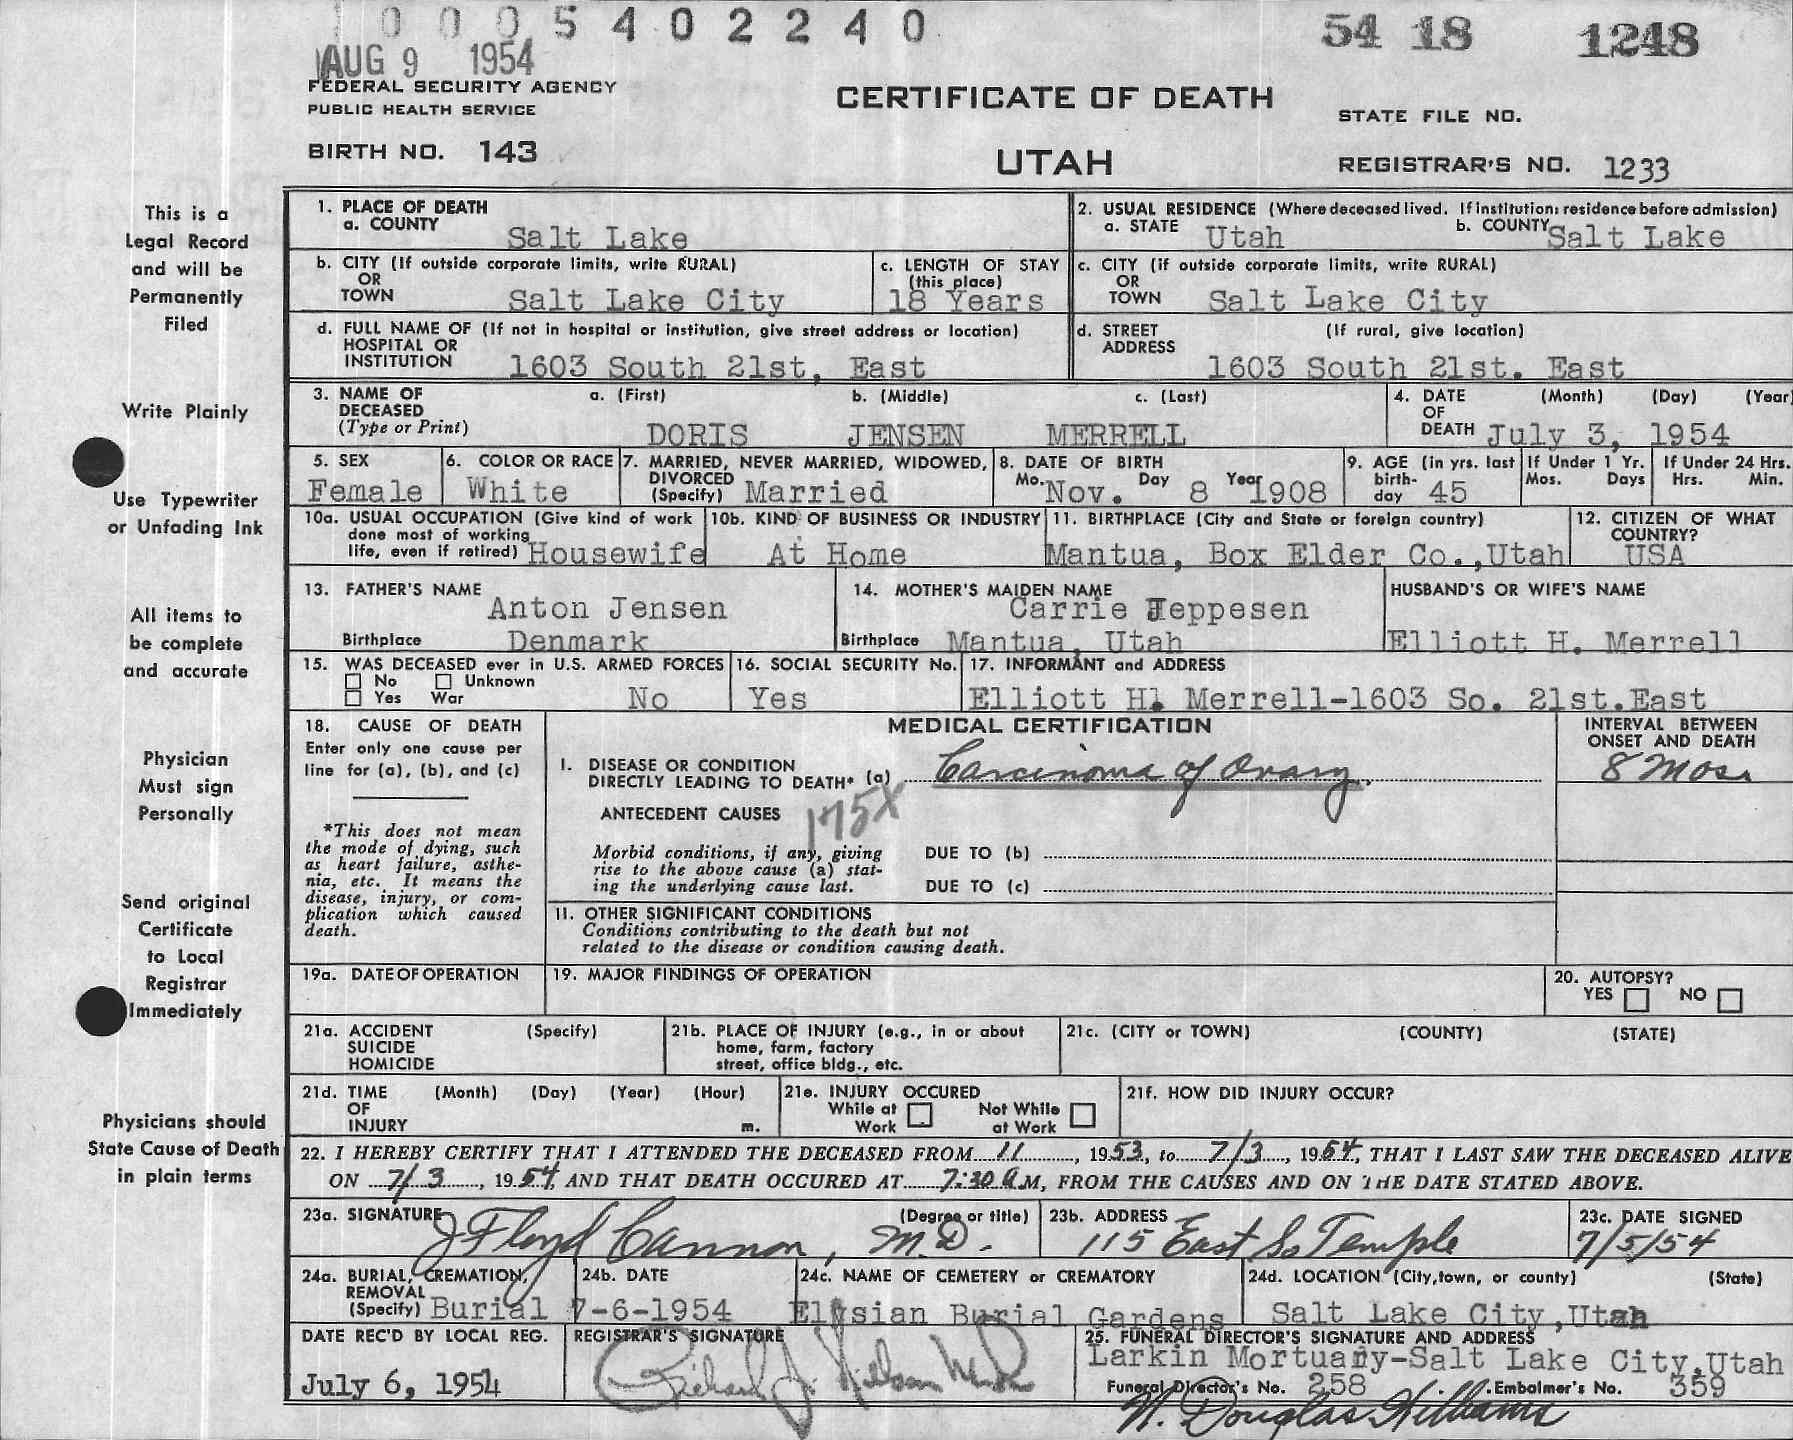 1 0 0 0 5 4 0 2 2 4 0
54 18 1248
AUG 9 1954
FEDERAL SECURITY AGENCY
PUBLIC HEALTH SERVICE
CERTIFICATE OF DEATH
STATE FILE NO.
BIRTH NO. 143
UTAH
REGISTRAR'S NO. 1233
This is a
Legal Record
and will be
Permanently
Filed
Write Plainly
Use Typewriter
or Unfading Ink
All items to
be complete
and accurate
Physician
Must sign
Personally
Send original
Certificate
to Local
Registrar
Immediately
Physicians should
State Cause of Death
in plain terms
1. PLACE OF DEATH
a. COUNTY
Salt Lake
2. USUAL RESIDENCE (Where deceased lived. If institution: residence before admission)
a. STATE Utah b. COUNTY Salt Lake
b. CITY (If outside corporate limits, write RURAL)
OR
TOWN Salt Lake City
c. LENGTH OF STAY
(this place)
18 Years
c. CITY (if outside corporate limits, write RURAL)
OR
TOWN Salt Lake City
d. FULL NAME OF (If not in hospital or institution, give street address or location)
HOSPITAL OR
INSTITUTION 1603 South 21st, East
d. STREET (If rural, give location)
ADDRESS
1603 South 21st. East
3. NAME OF a. (First) b. (Middle) c. (Last)
DECEASED
(Type or Print) DORIS JENSEN MERRELL
4. DATE (Month) (Day) (Year)
OF
DEATH July 3, 1954
5. SEX
Female
6. COLOR OR RACE
White
7. MARRIED, NEVER MARRIED, WIDOWED,
DIVORCED
(Specify) Married
8. DATE OF BIRTH
Mo. Nov. Day 8 Year 1908
9. AGE (in yrs. last
birth-
day 45
If Under 1 Yr.
Mos. Days
If Under 24 Hrs.
Hrs. Min.
10a. USUAL OCCUPATION (Give kind of work
done most of working
life, even if retired) Housewife
10b. KIND OF BUSINESS OR INDUSTRY
At Home
11. BIRTHPLACE (City and State or foreign country)
Mantua, Box Elder Co.,Utah
12. CITIZEN OF WHAT
COUNTRY?
USA
13. FATHER'S NAME
Anton Jensen
Birthplace Denmark
14. MOTHER'S MAIDEN NAME
Carrie Jeppesen
Birthplace Mantua, Utah
HUSBAND'S OR WIFE'S NAME
Elliott H. Merrell
15. WAS DECEASED ever in U.S. ARMED FORCES
No Unknown
Yes War No
16. SOCIAL SECURITY No.
Yes
17. INFORMANT and ADDRESS
Elliott H. Merrell-1603 So. 21st.East
18. CAUSE OF DEATH
Enter only one cause per
line for (a), (b), and (c)
*This does not mean
the mode of dying, such
as heart failure, asthe-
nia, etc. It means the
disease, injury, or com-
plication which caused
death.
MEDICAL CERTIFICATION
INTERVAL BETWEEN
ONSET AND DEATH
I. DISEASE OR CONDITION
DIRECTLY LEADING TO DEATH* (a) Carcinoma of Ovary. 8 Mos.
ANTECEDENT CAUSES 175X
Morbid conditions, if any, giving
rise to the above cause (a) stat-
ing the underlying cause last.
DUE TO (b)
DUE TO (c)
II. OTHER SIGNIFICANT CONDITIONS
Conditions contributing to the death but not
related to the disease or condition causing death.
19a. DATE OF OPERATION
19. MAJOR FINDINGS OF OPERATION
20. AUTOPSY?
YES NO
21a. ACCIDENT (Specify)
SUICIDE
HOMICIDE
21b. PLACE OF INJURY (e.g., in or about
home, farm, factory
street, office bldg., etc.
21c. (CITY or TOWN) (COUNTY) (STATE)
21d. TIME (Month) (Day) (Year) (Hour)
OF
INJURY m.
21e. INJURY OCCURED
While at Work Not While at Work
21f. HOW DID INJURY OCCUR?
22. I HEREBY CERTIFY THAT I ATTENDED THE DECEASED FROM 11, 1953, to 7/3, 1954, THAT I LAST SAW THE DECEASED ALIVE
ON 7/3, 1954, AND THAT DEATH OCCURED AT 7:30 A M, FROM THE CAUSES AND ON THE DATE STATED ABOVE.
23a. SIGNATURE (Degree or title)
J Floyd Cannon, M.D.
23b. ADDRESS
115 East So Temple
23c. DATE SIGNED
7/5/54
24a. BURIAL, CREMATION,
REMOVAL
(Specify) Burial
24b. DATE
7-6-1954
24c. NAME OF CEMETERY or CREMATORY
Elysian Burial Gardens
24d. LOCATION (City,town, or county) (State)
Salt Lake City,Utah
DATE REC'D BY LOCAL REG.
July 6, 1954
REGISTRAR'S SIGNATURE
Richard J. Nelson
25. FUNERAL DIRECTOR'S SIGNATURE AND ADDRESS
Larkin Mortuary-Salt Lake City,Utah
Funeral Director's No. 258 Embalmer's No. 359
N. Douglas Hillbams